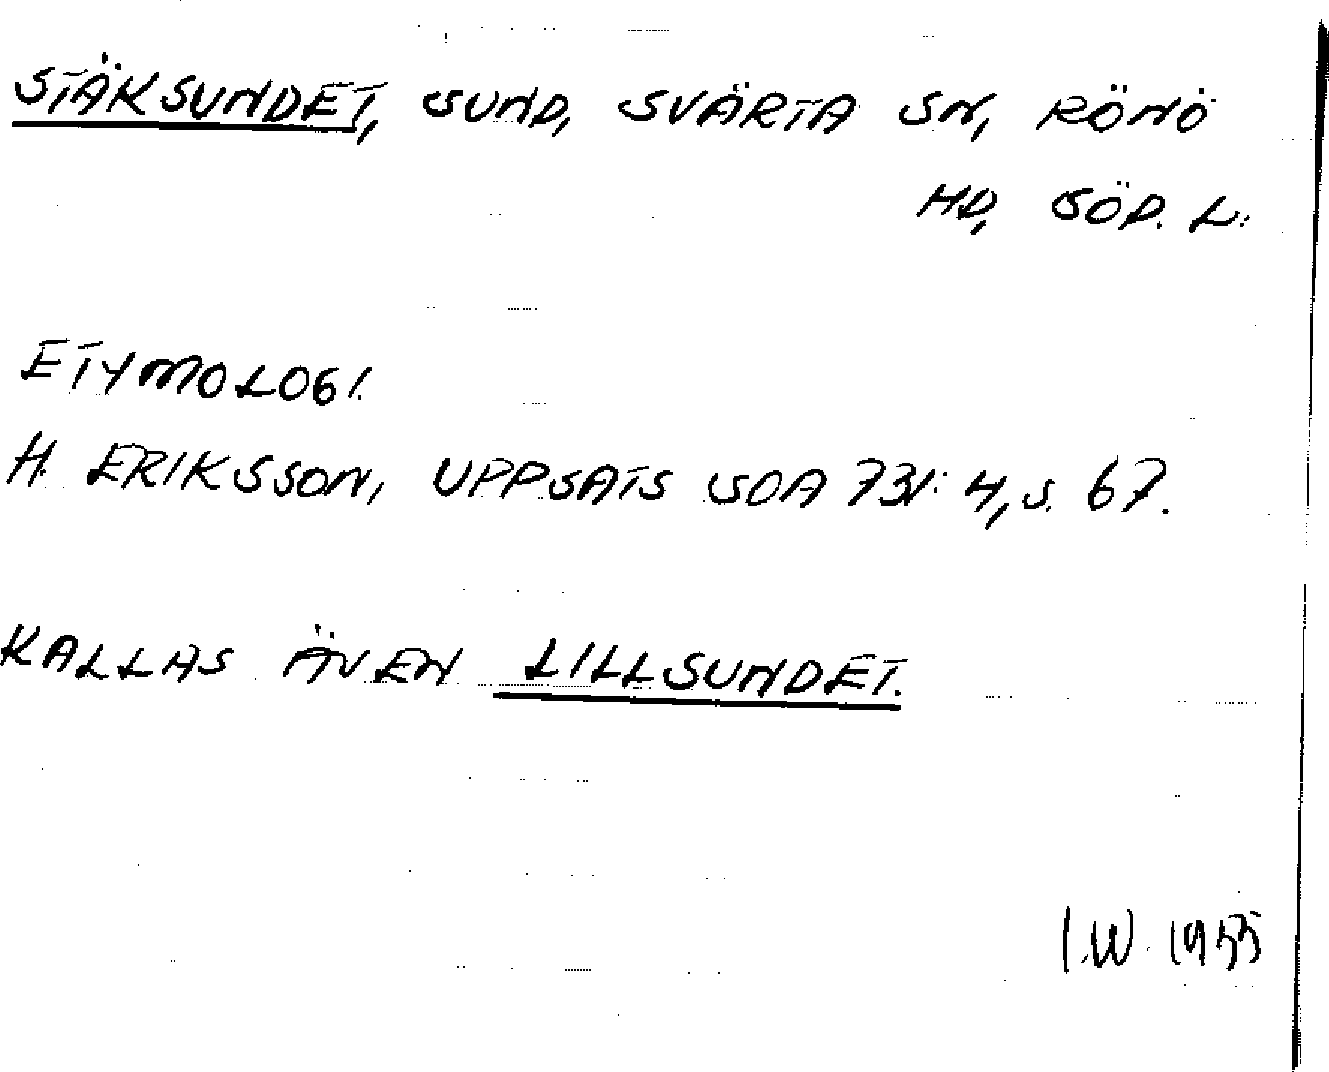 STÄKSUNDET, SUND, SVÄRTA SN, RÖNÖ
HD, SÖD. L.
ETYMOLOGI.
H. ERIKSSON, UPPSATS SOA 731:4, S. 67.
KALLAS ÄVEN LILLSUNDET.
I.W. 1955